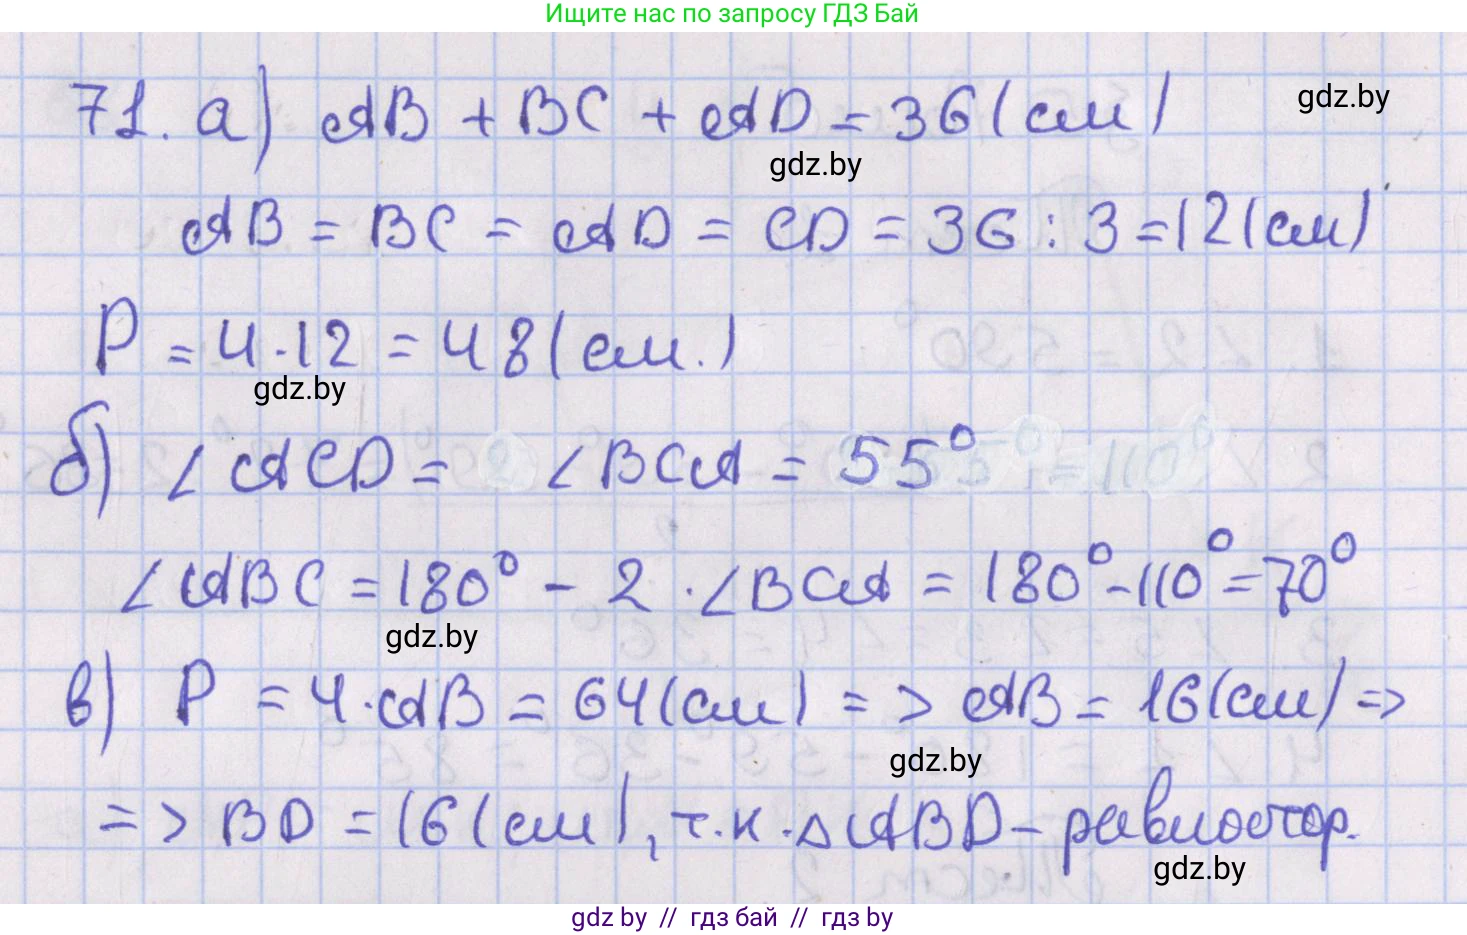 Ищите нас по запросу ГДЗ Бай
71. а) AB + BC + AD = 36 (см)
gdz.by
gdz.by
AB = BC = AD = CD = 36 : 3 = 12 (см)
P = 4 · 12 = 48 (см.)
gdz.by
б) ∠ACD = ∠BCA = 55°
∠ABC = 180° - 2 · ∠BCA = 180° - 110° = 70°
gdz.by
в) P = 4 · AB = 64 (см) => AB = 16 (см) =>
gdz.by
=> BD = 16 (см), т.к. △ABD - равностор.
gdz.by
gdz by // гдз бай // гдз by